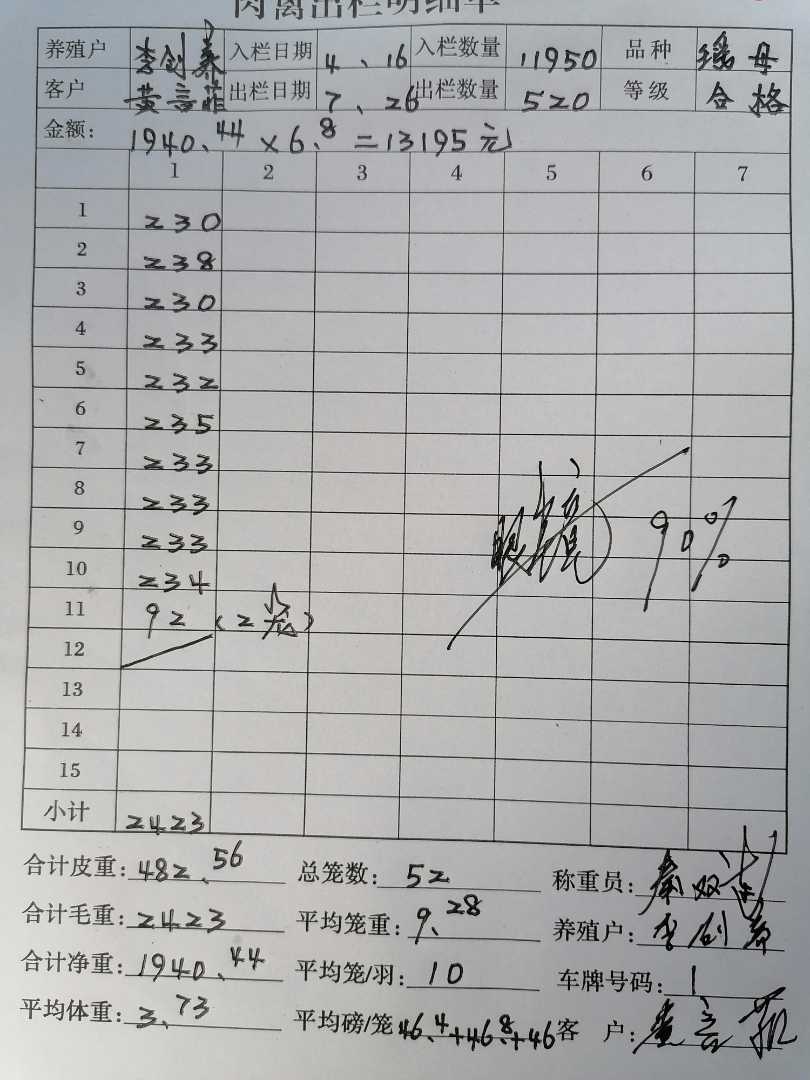 肉禽出栏明细单
养殖户 李创养 入栏日期 4、16 入栏数量 11950 品种 瑶母
客户 黄言菲 出栏日期 7、26 出栏数量 520 等级 合格
金额: 1940.44 × 6.8 = 13195元
1 2 3 4 5 6 7
1 230
2 238
3 230
4 233
5 232
6 235
7 233
8 233
9 233
10 234
11 92 (2笼)
眼镜 90%
12
13
14
15
小计 2423
合计皮重: 482.56 总笼数: 52 称重员: 秦双
合计毛重: 2423 平均笼重: 9.28 养殖户: 李创养
合计净重: 1940.44 平均笼/羽: 10 车牌号码: 1
平均体重: 3.73 平均磅/笼 46.4+46.8+46 客户: 黄言菲